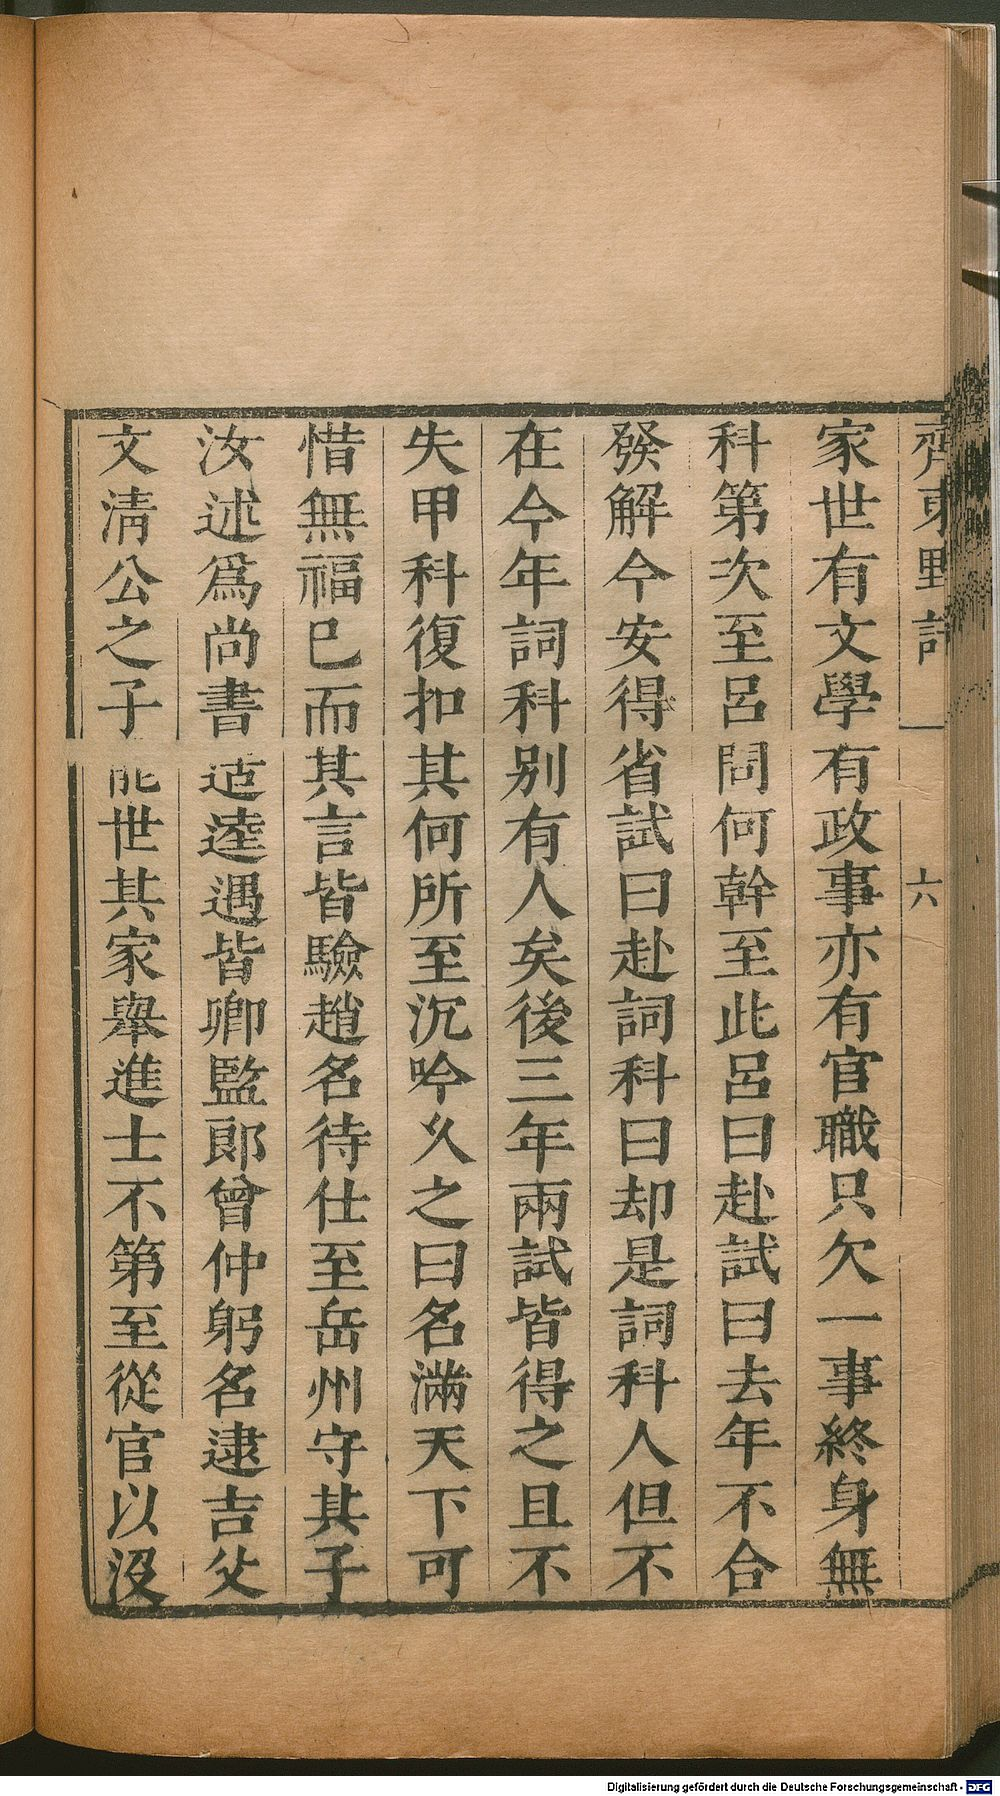 齊東野語
六
家世有文學有政事亦有官職只欠一事終身無
科第次至呂問何幹至此呂曰赴試曰去年不合
發解今安得省試曰赴詞科曰却是詞科人但不
在今年詞科别有人矣後三年兩試皆得之且不
失甲科復扣其何所至沉吟乆之曰名滿天下可
惜無福已而其言皆驗趙名待仕至岳州守其子
汝述爲尚書适逵遇皆卿監郎曾仲躬名逮吉父
文清公之子能世其家舉進士不第至從官以没
Digitalisierung gefördert durch die Deutsche Forschungsgemeinschaft - DFG